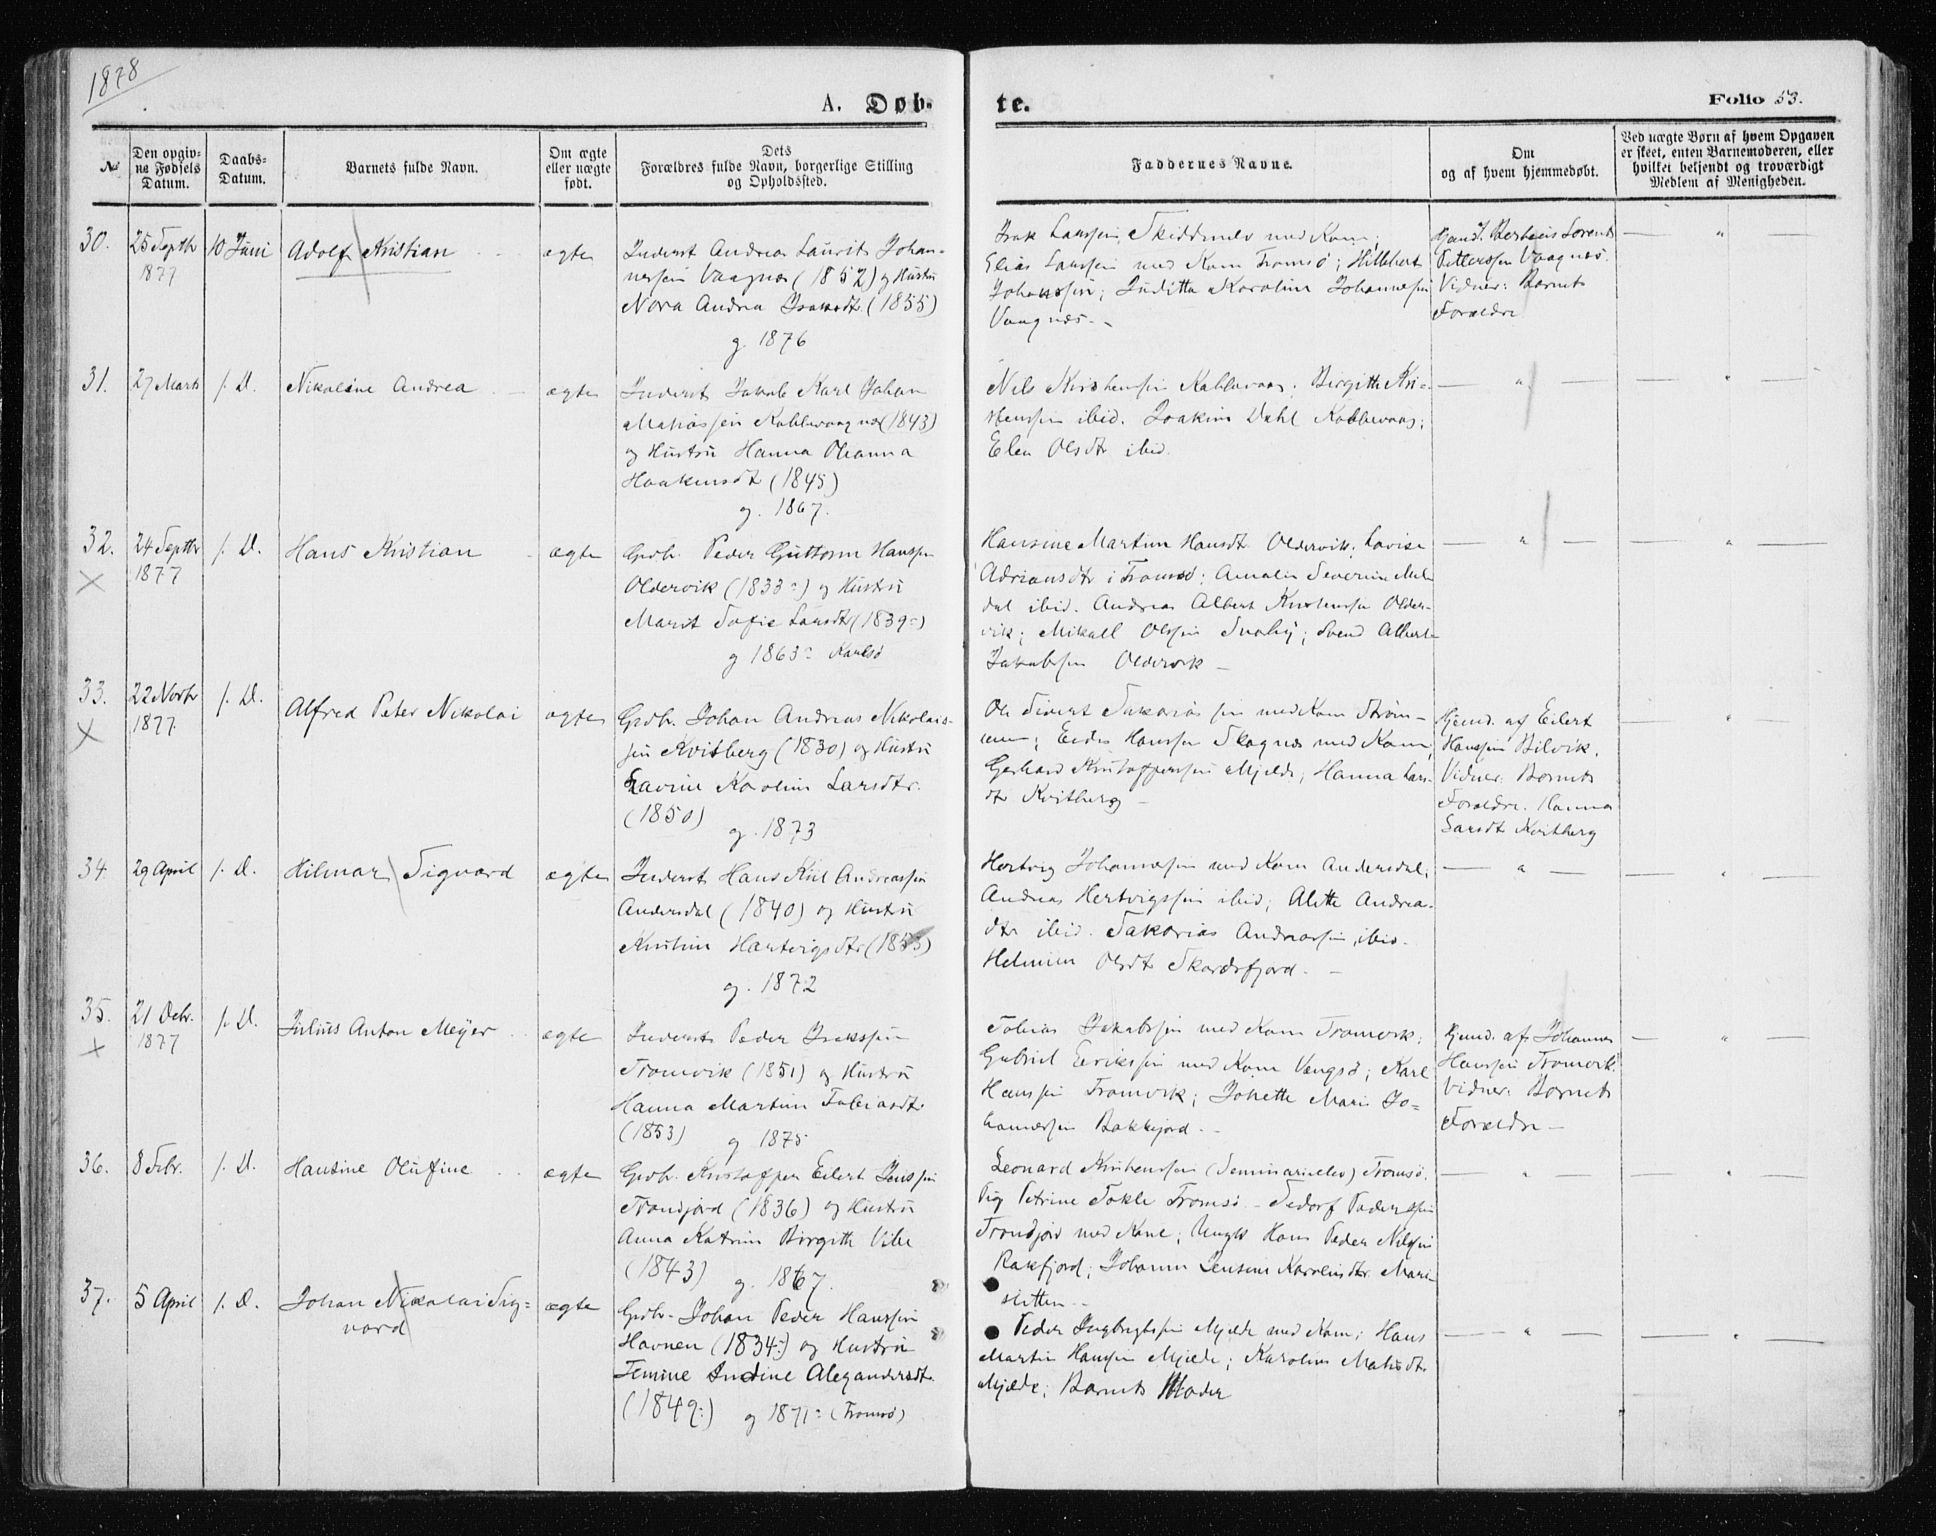 1878
A. Døb-
te.
Folio 53.
№
Den opgiv-
ne Fødsels
Datum.
Daabs-
Datum.
Barnets fulde Navn.
Om ægte
eller uægte
født.
Dets
Forældres fulde Navn, borgerlige Stilling
og Opholdssted.
Faddernes Navne.
Om
og af hvem hjemmedøbt.
Ved uægte Børn af hvem Opgaven
er skeet, enten Barnemoderen, eller
hvilket bekjendt og troværdigt
Medlem af Menigheden.
30.
25 Septbr
1877
10 Juni
Adolf Kristian
ægte
Inderst Andreas Laurits Johan-
nessen Vaagnæs (1852) og Hustru
Nora Andrea Isaksdtr. (1855)
g. 1876
Isak Larssen, Skiddenelv med Kone;
Elias Larssen med Kone Tromsø; Hillebert
Johanssen; Juditta Karoline Johannessen
Vaagnæs. -
Hjemd. Berhans Lorents
Petterssen Vaagnæs.
Vidner: Barnets
Forældre
31.
27 Marts
s. D.
Nikoline Andrea
ægte
Inderst Jakob Karl Johan
Mathiassen Kobbevaagnes (1843)
og Hustru Hanna Olianna
Haakensdtr (1845)
g. 1867.
Nils Kristenssen Kobbevaag; Birgitte Kri-
stenssen ibid. Joakim Dahl Kobbevaag;
Elen Olsdtr ibid.
32.
24 Septbr
1877
s. D.
Hans Kristian
ægte
Grdbr. Peder Guttorm Hanssen
Oldervik (1833:) og Hustru
Marit Sofie Larsdtr (1839:)
g 1863: Karlsø
Hansine Martine Hansdtr Oldervik; Lovise
Adriansdtr i Tromsø; Amalie Severine Mel-
dal ibid. Andreas Albert Kristenssen Older-
vik; Mikall Olssen Snarby; Svend Albert
Jakobssen Oldervik -
33.
22 Novbr
1877
s. D.
Alfred Peter Nikolai
ægte
Grdbr. Johan Andreas Nikolais-
sen Kvitberg (1830) og Hustru
Lavine Karoline Larsdtr.
(1850)
g. 1873
Ole Sivert Sakariassen med Kone Strøm-
men; Hanssen Skognæs med Kone,
Gerhard Kristofferssen Mjelde; Hanna Lars-
dtr Kvitberg -
Hjemd. af Eilert
Hanssen Bilvik.
Vidner: Barnets
Forældre. Hanna
Larsdt Kvitberg
34
29 April
s. D.
Hilmar Sigvard
ægte
Inderst Hans Kiil Andreassen
Andersdal (1840) og Hustru
Kristine Hartvigsdtr (1853)
g. 1872
Hertvig Johannessen med Kone Andersdal;
Andreas Hertvigssen ibid; Alette Andreas-
dtr ibid. Sakarias Andreassen, ibid.
Helmine Olsdtr Skardsfjord. -
35.
21 Debr.
1877
s. D.
Julius Anton Meyer
ægte
Inderst Peder Isakssen
Tromvik (1851) og Hustru
Hanna Martine Tobiasdtr.
(1853)
g 1875
Tobias Jakobssen med Kone Tromvik;
Gabriel Erikssen med Kone Vengsø; Karl
Hanssen Tromvik; Johette Marie Jo-
hannessen Bakkejord. -
Hjemd. af Johannes
Hanssen Tromvik
Vidner: Barnets
Forældre -
36.
8 Febr.
s. D.
Hansine Olufine
ægte
Grdbr. Kristoffer Eilert Jenssen
Trondjord (1836) og Hustru
Anna Katrine Birgitte Vibe
(1843)
g. 1867.
Leonard Kristenssen (Seminarielev) Tromsø.
Pig Petrine Tokle Tromsø. - Fedorf Pederssen
Trondjord med Kone; Ungk Hans Peder Nilssen
Rakfjord; Johanne Jensine Karolinsdtr. Mari-
sletten -
37.
5 April
s. D.
Johan Nikolai Sig-
vard
ægte
Grdbr. Johan Peder Hanssen
Havnen (1834:) og Hustru
Femine Andine Alexandersdtr.
(1849:)
g 1871: (Tromsø)
Peder Ingbrigtssen Mjelde med Kone; Hans
Martin Hanssen Mjelde; Karoline Matisdtr
Mjelde; Barnets Moder